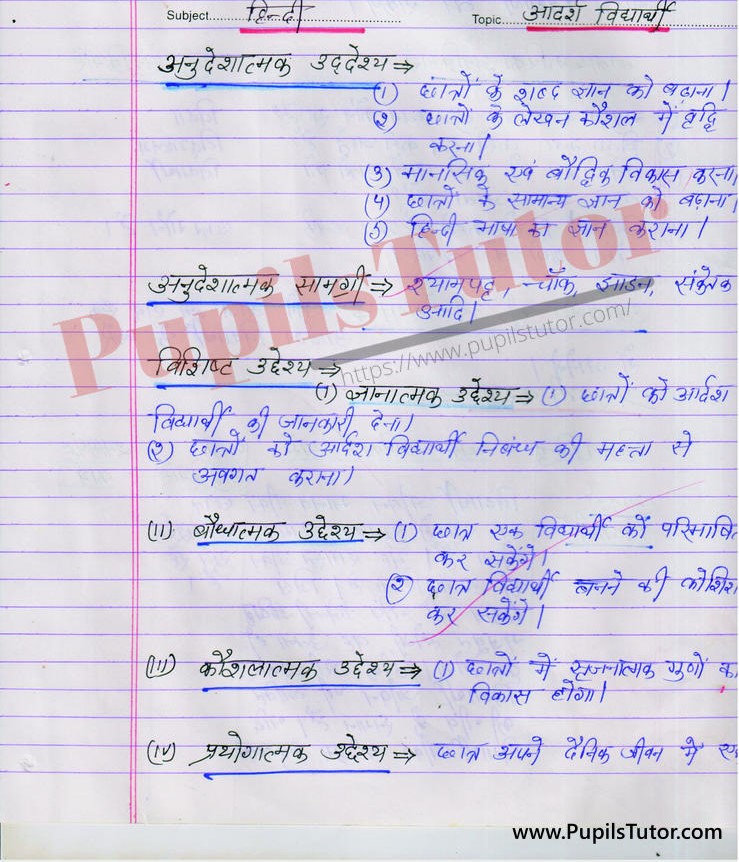 Subject हिन्दी Topic आदर्श विद्यार्थी
अनुदेशात्मक उद्देश्य ⇒
(1) छात्रों के शब्द ज्ञान को बढ़ाना।
(२) छात्रों के लेखन कौशल में वृद्धि
करना।
(3) मानसिक एवं बौद्धिक विकास करना।
(4) छात्रों के सामान्य ज्ञान को बढ़ाना।
(5) हिन्दी भाषा का ज्ञान कराना।
अनुदेशात्मक सामग्री ⇒ श्यामपट्ट, चॉक, झाडन, संकेतक
आदि।
PupilsTutor
https://www.pupilstutor.com/
विशिष्ट उद्देश्य ⇒
(1) ज्ञानात्मक उद्देश्य ⇒ (1) छात्रों को आर्दश
विद्यार्थी की जानकारी देना।
(२) छात्रों को आर्दश विद्यार्थी निबंध की महत्ता से
अवगत कराना।
(II) बौधात्मक उद्देश्य ⇒ (1) छात्र एक विद्यार्थी को परिभाषि
कर सकेंगे।
(२) छात्र विद्यार्थी बनने की कोशिश
कर सकेंगे।
(III) कौशलात्मक उद्देश्य ⇒ (1) छात्रों में सृजनात्मक गुणों का
विकास होगा।
(IV) प्रयोगात्मक उद्देश्य ⇒ छात्र अपने दैनिक जीवन में
www.PupilsTutor.com